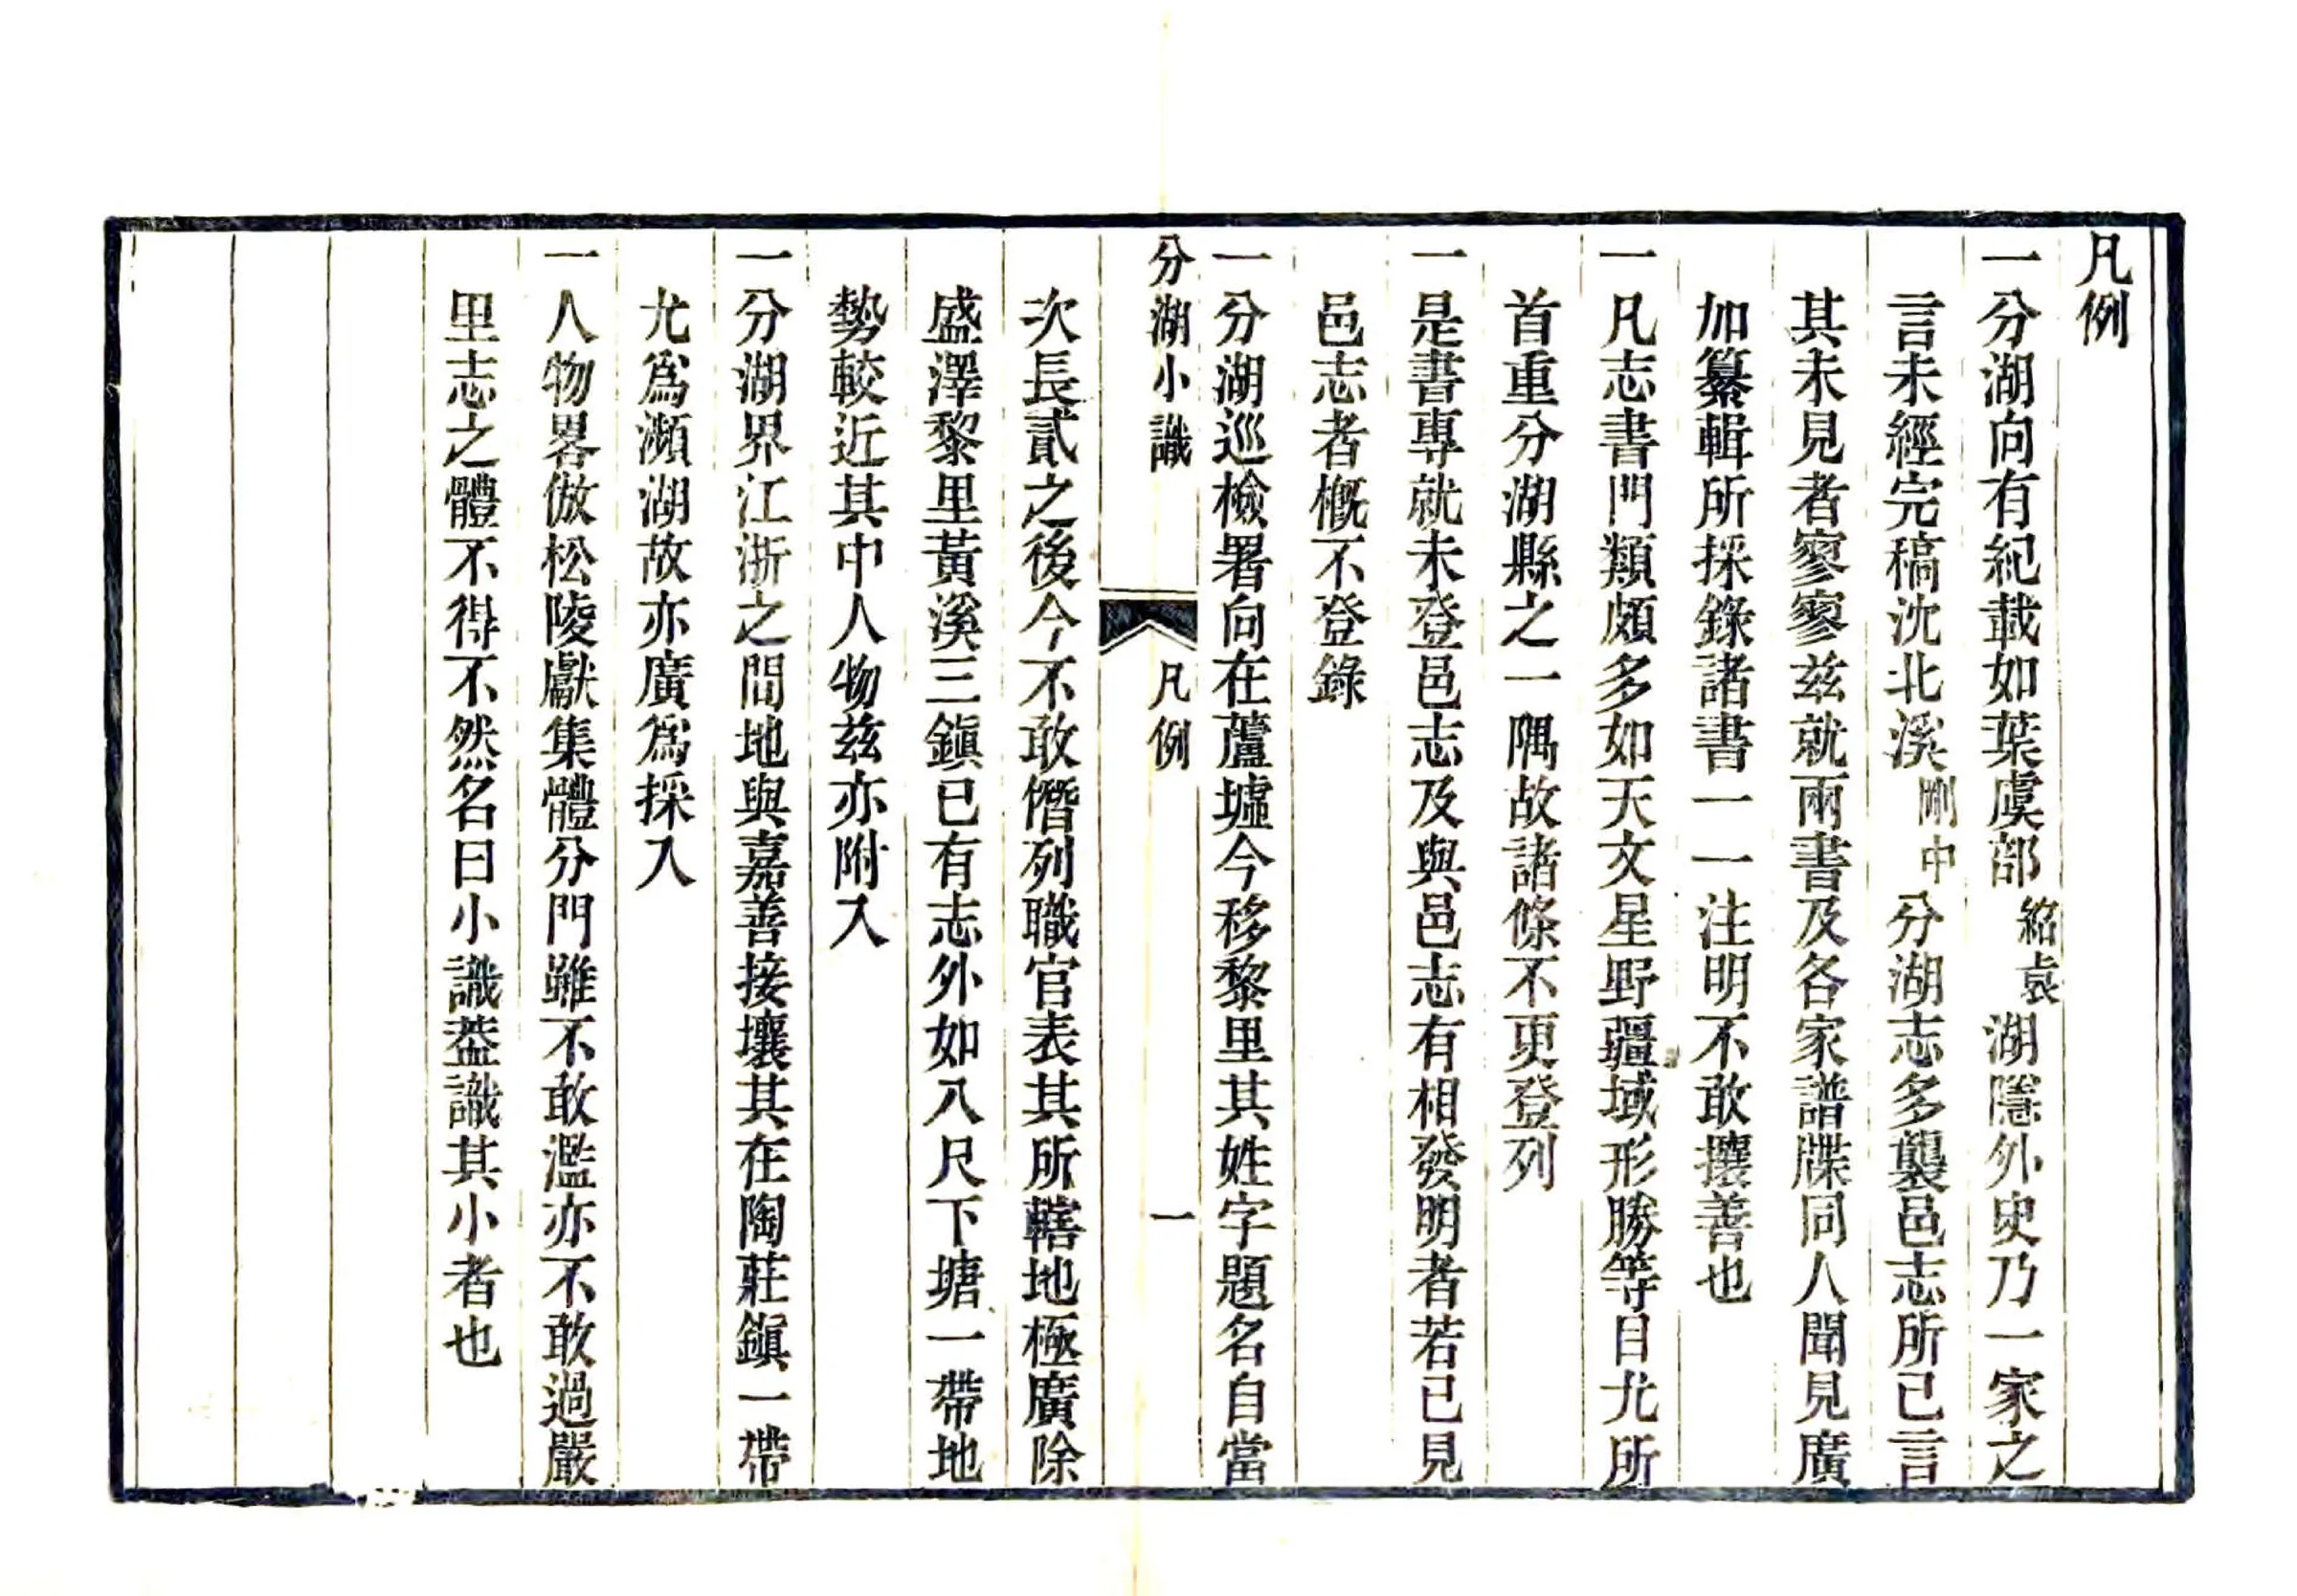 凡例
一分湖向有紀載如葉虞部紹袁湖隱外史乃一家之
言未經完稿沈北溪剛中分湖志多襲邑志所已言
其未見者寥寥玆就兩書及各家譜牒同人聞見廣
加纂輯所採錄諸書一一注明不敢攘善也
一凡志書門類頗多如天文星野疆域形勝等目尤所
首重分湖縣之一隅故諸條不更登列
一是書專就未登邑志及與邑志有相發明者若已見
邑志者槪不登錄
一分湖巡檢署向在蘆墟今移黎里其姓字題名自當
分湖小識 凡例 一
次長貳之後今不敢僭列職官表其所轄地極廣除
盛澤黎里黃溪三鎭已有志外如八尺下塘一帶地
勢較近其中人物玆亦附入
一分湖界江浙之間地與嘉善接壤其在陶莊鎭一帶
尤爲瀕湖故亦廣爲採入
一人物畧倣松陵獻集體分門雖不敢濫亦不敢過嚴
里志之體不得不然名曰小識葢識其小者也